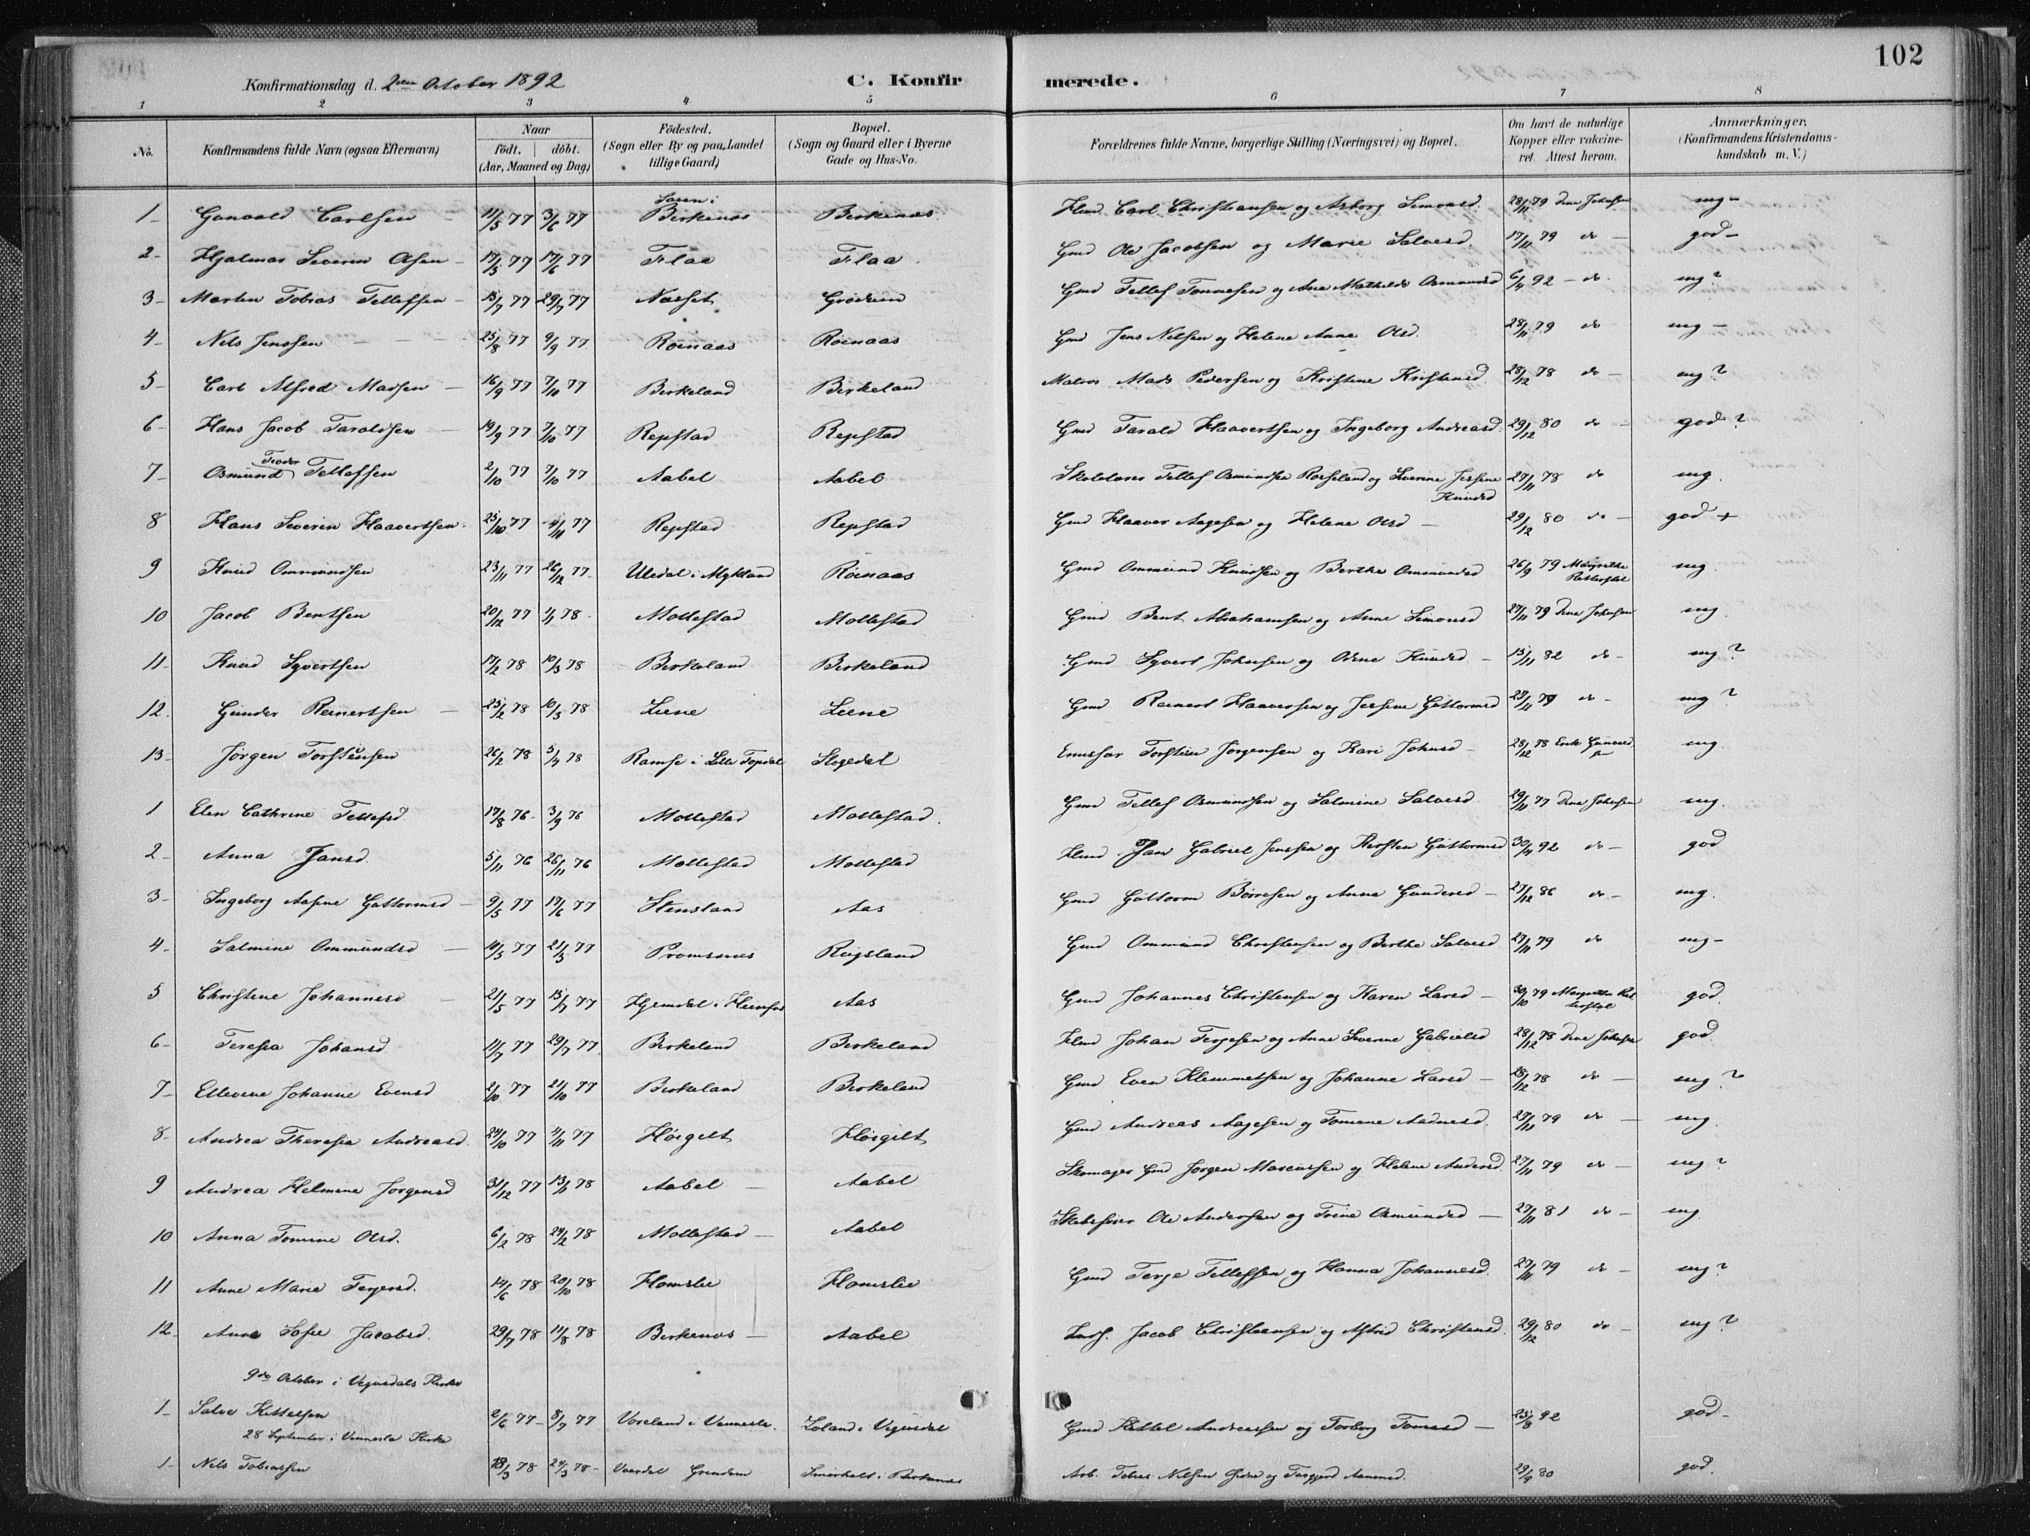 102
Konfirmationsdag d. 2den October 1892 C. Konfirmerede.
1 2 3 4 5 6 7 8
No. Konfirmandens fulde Navn (ogsaa Efternavn) Naar født. døbt. (Aar, Maaned og Dag) Fødested. (Sogn eller By og paa Landet tillige Gaard) Bopæl. (Sogn og Gaard eller i Byerne Gade og Hus-No. Forældrenes fulde Navne, borgerlige Stilling (Næringsvei) og Bopæl. Om havt de naturlige Kopper eller vakcineret. Attest herom. Anmærkninger. (Konfirmandens Kristendomskundskab m. V.)
1 Gunvald Carlsen 11/5 77 3/6 77 Birkenæs Birkenæs Carl Christiansen og Asborg Simonsd. 28/11 79 mg
2 Hjalmar Severin Olsen 17/5 77 17/6 77 Flaa Flaa Gmd Ole Jacobsen og Marie Salvesd. 17/11 79 do god
3 Martin Tobias Tellefsen 15/7 77 29/7 77 Næset Grødum Gmd Tellef Tønnesen og Ane Mathilde Osmundsd 6/4 92 do mg?
4 Nels Jensen 25/8 77 9/9 77 Røinaas Røinaas Gmd Jens Nelsen og Helene Anne Olsd. 28/11 79 do mg
5 Carl Alfred Madsen 16/9 77 7/10 77 Birkeland Birkeland Matros Mads Pedersen og Kristine Kristensd. 28/12 78 do mg?
6 Hans Jacob Taraldsen 19/9 77 7/10 77 Repstad Repstad Gmd Tarald Haavertsen og Ingeborg Andreasd. 29/12 80 do god?
7 Osmund Teodor Tellefsen 2/10 77 7/10 77 Aabel Aabel Skolelærer Tellef Osmundsen Røseland og Severine Jersine Knudsd 27/11 78 do mg.
8 Hans Severin Haavertsen 25/10 77 4/11 77 Repstad Repstad Gmd Haaver Aagesen og Helene Olsd 29/12 80 do god +
9 Knud Ommundsen 23/11 77 26/12 77 Uledal i Mykland Røinaas Gmd Ommund Knudsen og Berthe Ommundsd 26/9 79 mg.
10 Jacob Bentsen 20/12 77 1/1 78 Mollestad Mollestad Gmd Bent Abrahamsen og Anne Simonsd 27/11 79 mg
11 Knud Syvertsen 17/2 78 10/3 78 Birkeland Birkeland Gmd Syvert Johnsen og Odine Knudsd 15/11 82 do mg?
12 Gunder Reinertsen 25/2 78 10/3 78 Liene Liene Gmd Reinert Haaversen og Jersine Guttormsd 27/11 79 do mg?
13 Jørgen Torsteinsen 26/2 78 5/4 78 Ramse i Lille Topdal Skogedal Torstein Jørgensen og Kari Johnsd 28/12 78 mg.
1 Elen Cathrine Tellefsd 14/8 76 3/9 76 Mollestad Mollestad Gmd Tellef Osmundsen og Salmine Salvesd. 29/11 77 mg.
2 Anna Jansd. 5/11 76 26/11 76 Mollestad Mollestad Jan Gabriel Jensen og Kirsten Guttormsd 30/4 92 do god
3 Ingeborg Aasine Guttormsd 9/5 77 17/6 77 Stensland Aas Gmd Guttorm Børresen og Anna Gundersd 27/12 86 do mg.
4 Salmine Ommundsd 14/5 77 21/5 77 Promsnes Rugsland Gmd Ommund Christensen og Berthe Salvesd 27/11 79 do mg
5 Christine Johannesd 21/5 77 15/7 77 Aas Gmd Johannes Christensen og Karen Larsd 30/10 79 god.
6 Teresia Johansd 11/7 77 29/7 77 Birkeland Birkeland Johan Terjesen og Anne Severine Gabrielsd 28/12 78 god.
7 Ellevine Johanne Evensd 2/10 77 21/10 77 Birkeland Birkeland Gmd Even Klemmetsen og Johanne Larsd 28/12 78 do mg?
8 Andrea Theresia Andreasd. 24/10 77 4/11 77 Høigilt Høigilt Gmd Andreas Aagesen og Tomine Aadnesd. 27/11 79 do mg.
9 Andrea Helmine Jørgensd 31/12 77 13/1 78 Aabel Aabel Skomager Gmd Jørgen Marcussen og Helene Andersd. 27/11 79 do mg?
10 Anna Tomine Olsd. 6/2 78 24/2 78 Mollestad Aabel Ole Andersen og Trine Osmundsd 27/11 81 do mg.
11 Anne Marie Terjesd. 14/6 78 20/10 78 Homslie Homslie Gmd Terje Tellefsen og Hanna Johannesd. 27/11 79 do mg?
12 Anne Sofie Jacobsd. 29/7 78 11/8 78 Birkenæs Aabel Jacob Christiansen og Astrid Christensd. 29/12 80 do mg?
9de October i Vegusdals Kirke
1 Salve Kittelsen 2/6 77 8/7 77 Voreland i Vennesla. Loland i Vegusdal Gmd Kittel Andreassen og Torborg Tomasd 25/8 92 god
28 September i Vennesla Kirke
1 Nels Tobiassen 18/3 78 24/3 78 Vaardal Grindum i Birkenes Arb. Tobias Nilsen og Torgjerd Aamundsd. 29/9 80 god.